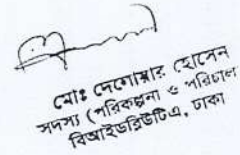 মোঃ দেলোয়ার হোসেন
সদস্য (পরিকল্পনা ও পরিচাল
বিআইডব্লিউটিএ, ঢাকা